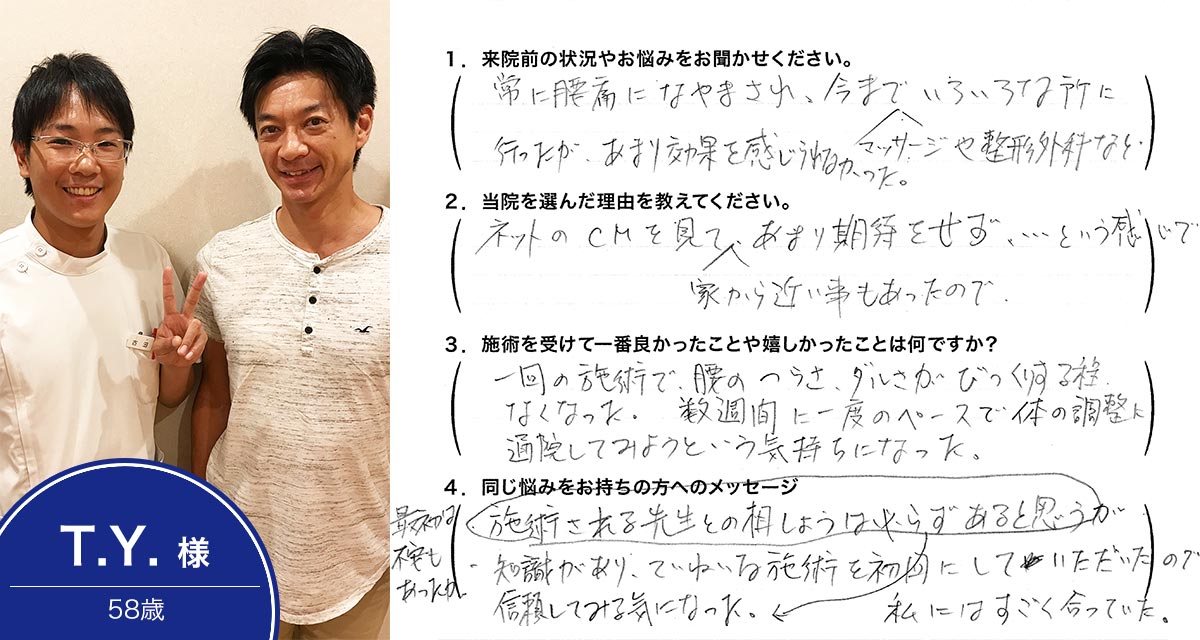 1．来院前の状況やお悩みをお聞かせください。
常に腰痛になやまされ、今までいろいろな所に
マッサージや整形外科など
行ったが、あまり効果を感じられなかった。
2．当院を選んだ理由を教えてください。
ネットのCMを見て、あまり期待をせず、…という感じで
家から近い事もあったので、
3．施術を受けて一番良かったことや嬉しかったことは何ですか？
一回の施術で、腰のつらさ、ダルさがびっくりする程、
なくなった。数週間に一度のペースで体の調整に
通院してみようという気持ちになった。
4．同じ悩みをお持ちの方へのメッセージ
施術される先生との相しょうは必らずあると思うが
最初は
不安も
あったが、
知識があり、ていねいな施術を初回にしていただいたので
信頼してみる気になった。
私にはすごく合っていた。
T.Y. 様
58歳